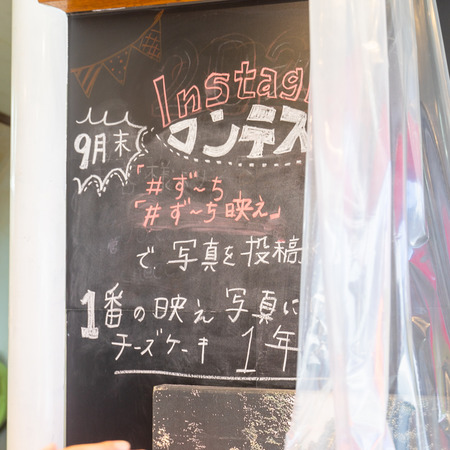 Instag
コンテス
9月末
「#ず〜ち
「#ず〜ち映え」
で写真を投稿
1番の映え写真に
チーズケーキ 1年